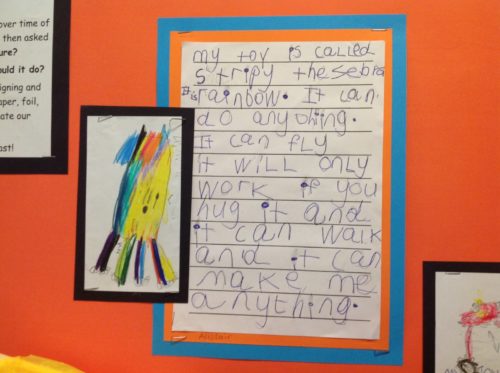 over time of
then asked
ure?
ould it do?
igning and
aper, foil,
ate our
ast!
my toy is called
stripy thesebra
It is rainbow. It can.
do anything.
It can fly
it will only
work if you
hug it and
it can walk
and it can
make me
anything.
Alistair